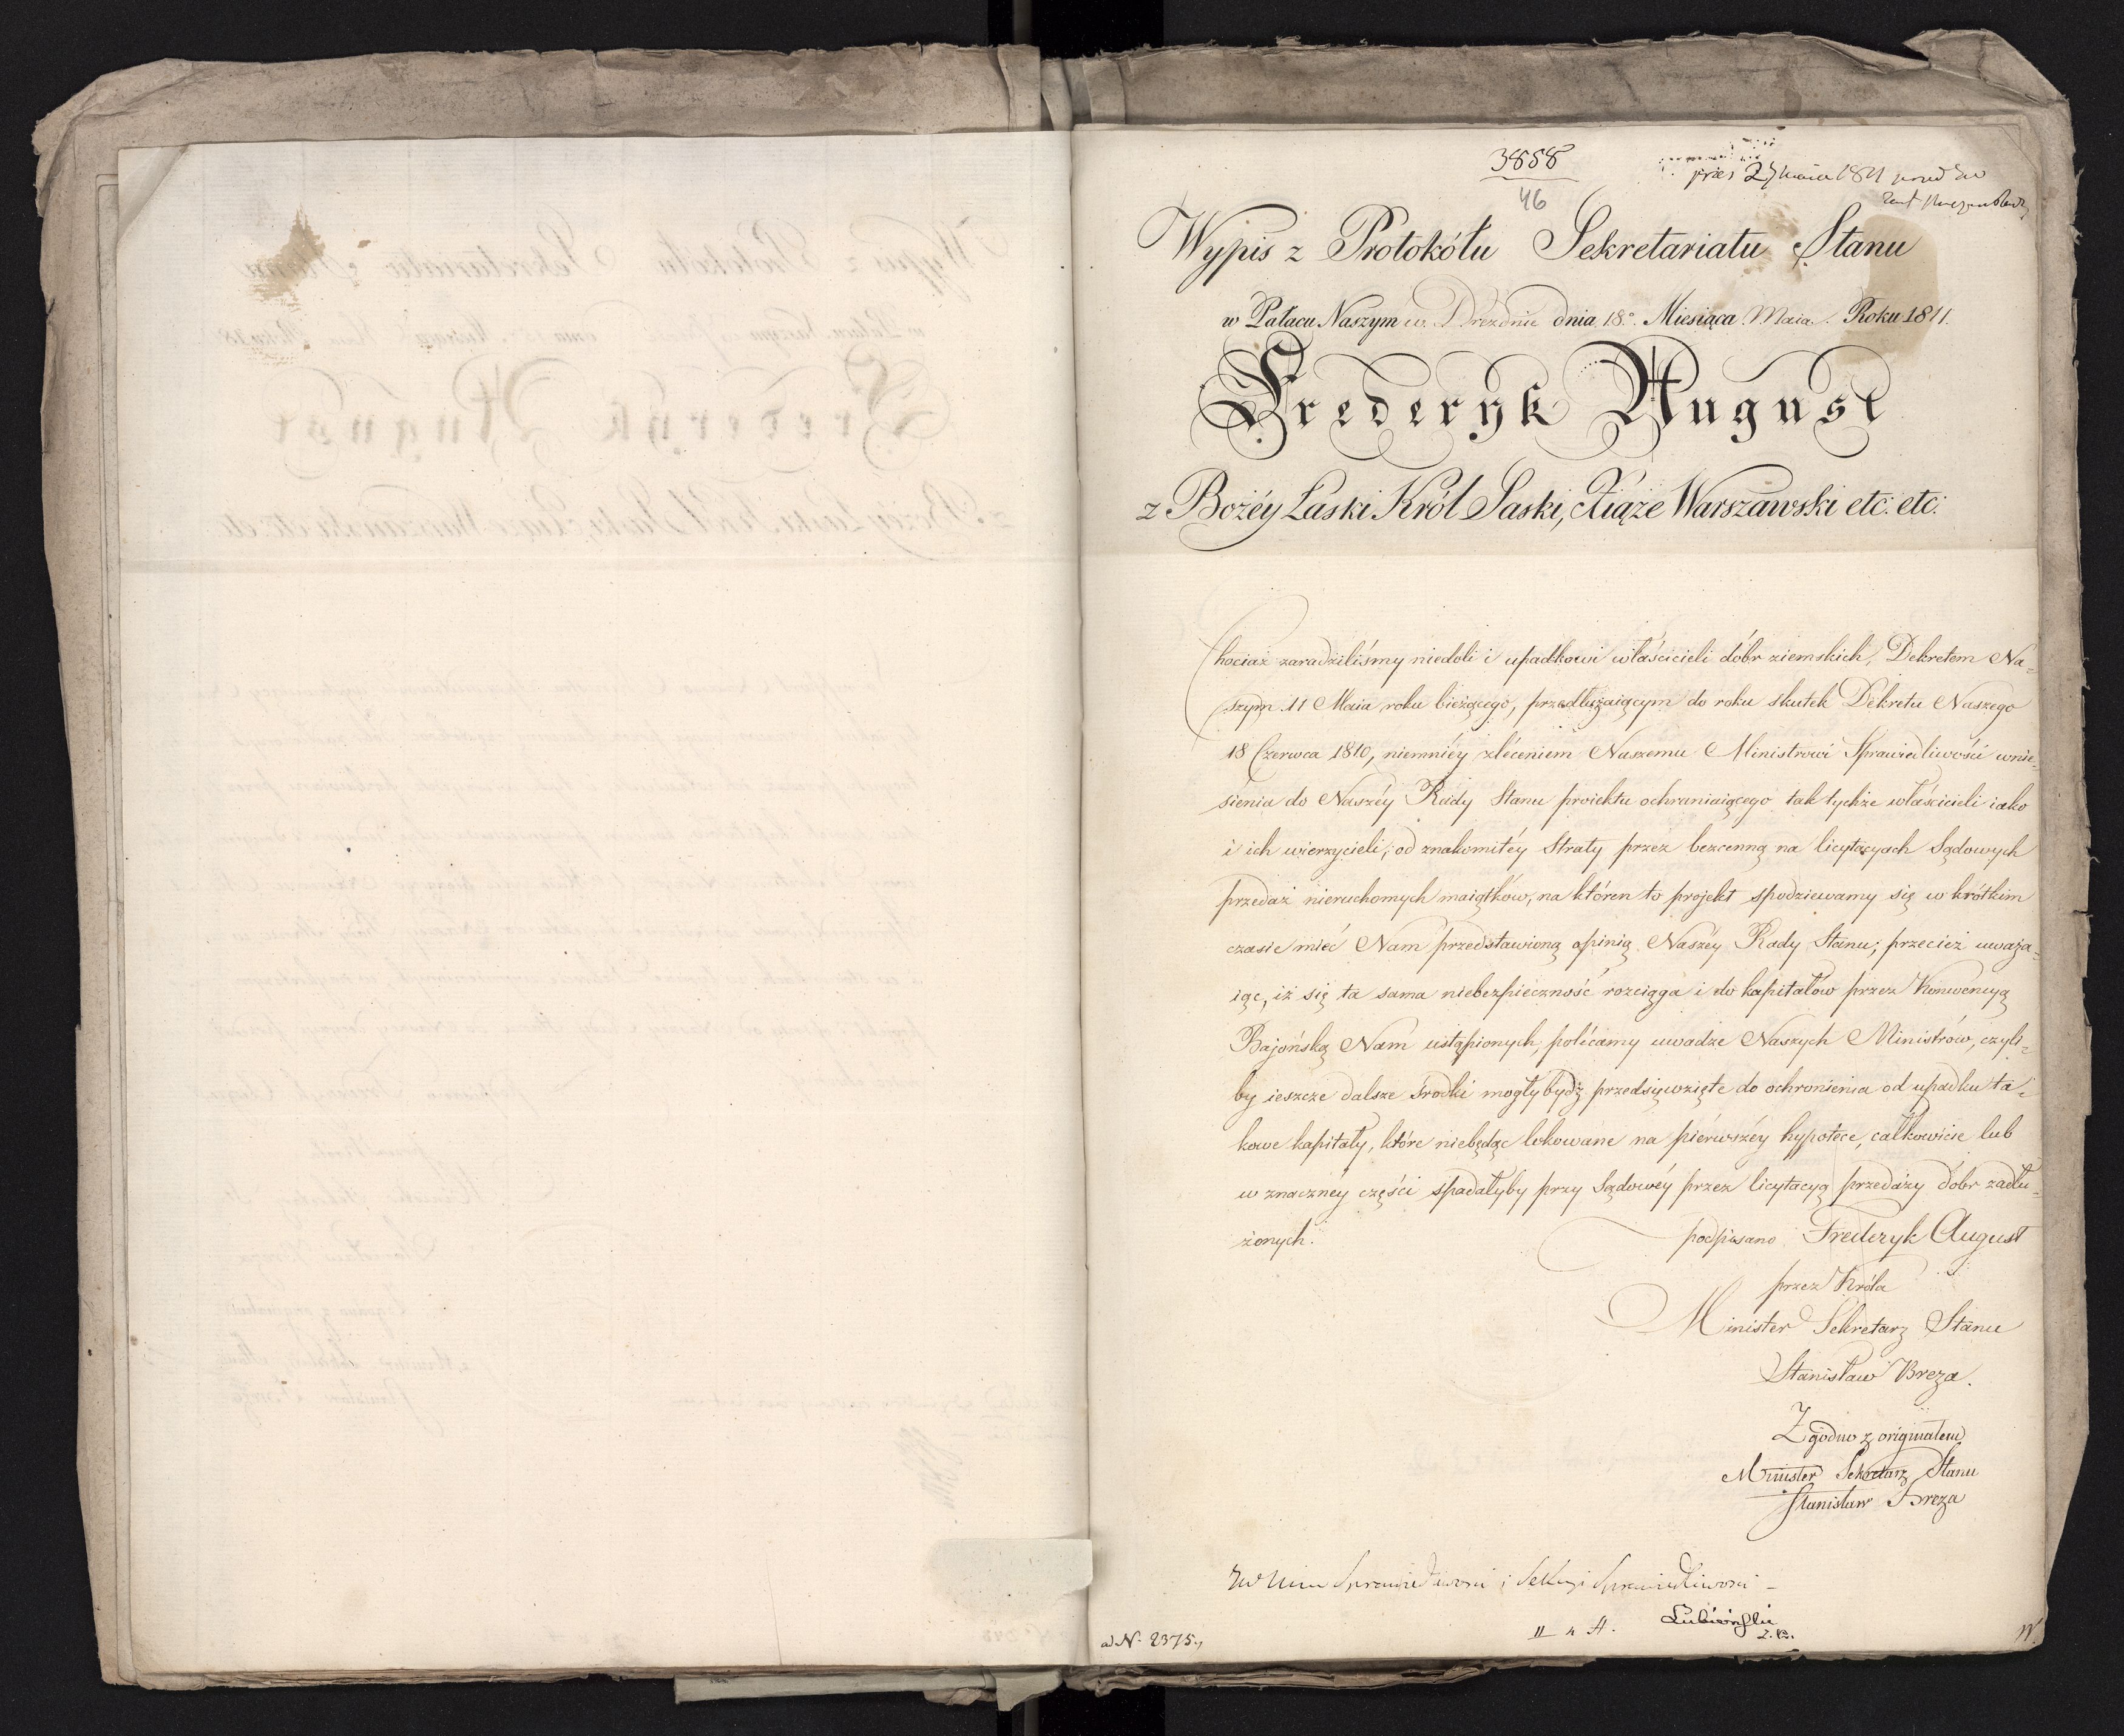 3858
46
27 maia 1811
Wypis z Protokółu Sekretariatu Stanu
w Pałacu Naszym w Dreznie dnia 18º Miesiąca Maia Roku 1811.
Frederyk August
z Bożéy Łaski Król Saski, Xiąże Warszawski etc: etc:
Chociaż zaradziliśmy niedoli i upadkowi właścicieli dóbr ziemskich, Dekretem Na=
szym 11 Maia roku bieżącego, przedłużaiącym do roku skutek Dekretu Naszego
18 Czerwca 1810, niemniéy zléceniem Naszemu Ministrowi Sprawiedliwości wnie=
sienia do Naszéy Rady Stanu proiektu ochraniaiącego tak tychże właścicieli iako
i ich wierzycieli, od znakomitéy straty przez bezcenną na licytacyach Sądowych
przedaż nieruchomych maiątków, na któren to projekt spodziewamy się w krótkim
czasie mieć Nam przedstawioną opinią Naszéy Rady Stanu; przecież uważa=
iąc, iż się ta sama niebezpieczność rozciąga i do kapitałów przez Konwencyą
Bajońską Nam ustąpionych, polécamy uwadze Naszych Ministrów, czyli=
by ieszcze dalsze środki mogły bydź przedsięwzięte do ochronienia od upadku ta=
kowe kapitały, które niebędąc lokowane na piérwszéy hypotece, całkowicie lub
w znacznéy części spadałyby przy Sądowéy przez licytacyą przedaży dóbr zadłu=
żonych.
podpisano Frederyk August
przez Króla
Minister Sekretarz Stanu
Stanisław Breza.
Zgodno z originałem
Minister Sekretarz Stanu
Stanisław Breza
Sprawiedliwości i Sekcyi Sprawiedliwości –
Lubieński
ad N. 2375.